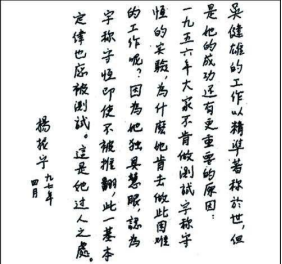 吳健雄的工作以精準著称於世，但
是他的成功还有更重要的原因：
一九五六年大家不肯做測試宇称守
恒的实驗，為什麼他肯去做此困难
的工作呢？因為他独具慧眼認為
宇称守恒即使不被推翻，此一基本
定律也应被測試。這是他过人之處。
楊振宁
九七年
四月